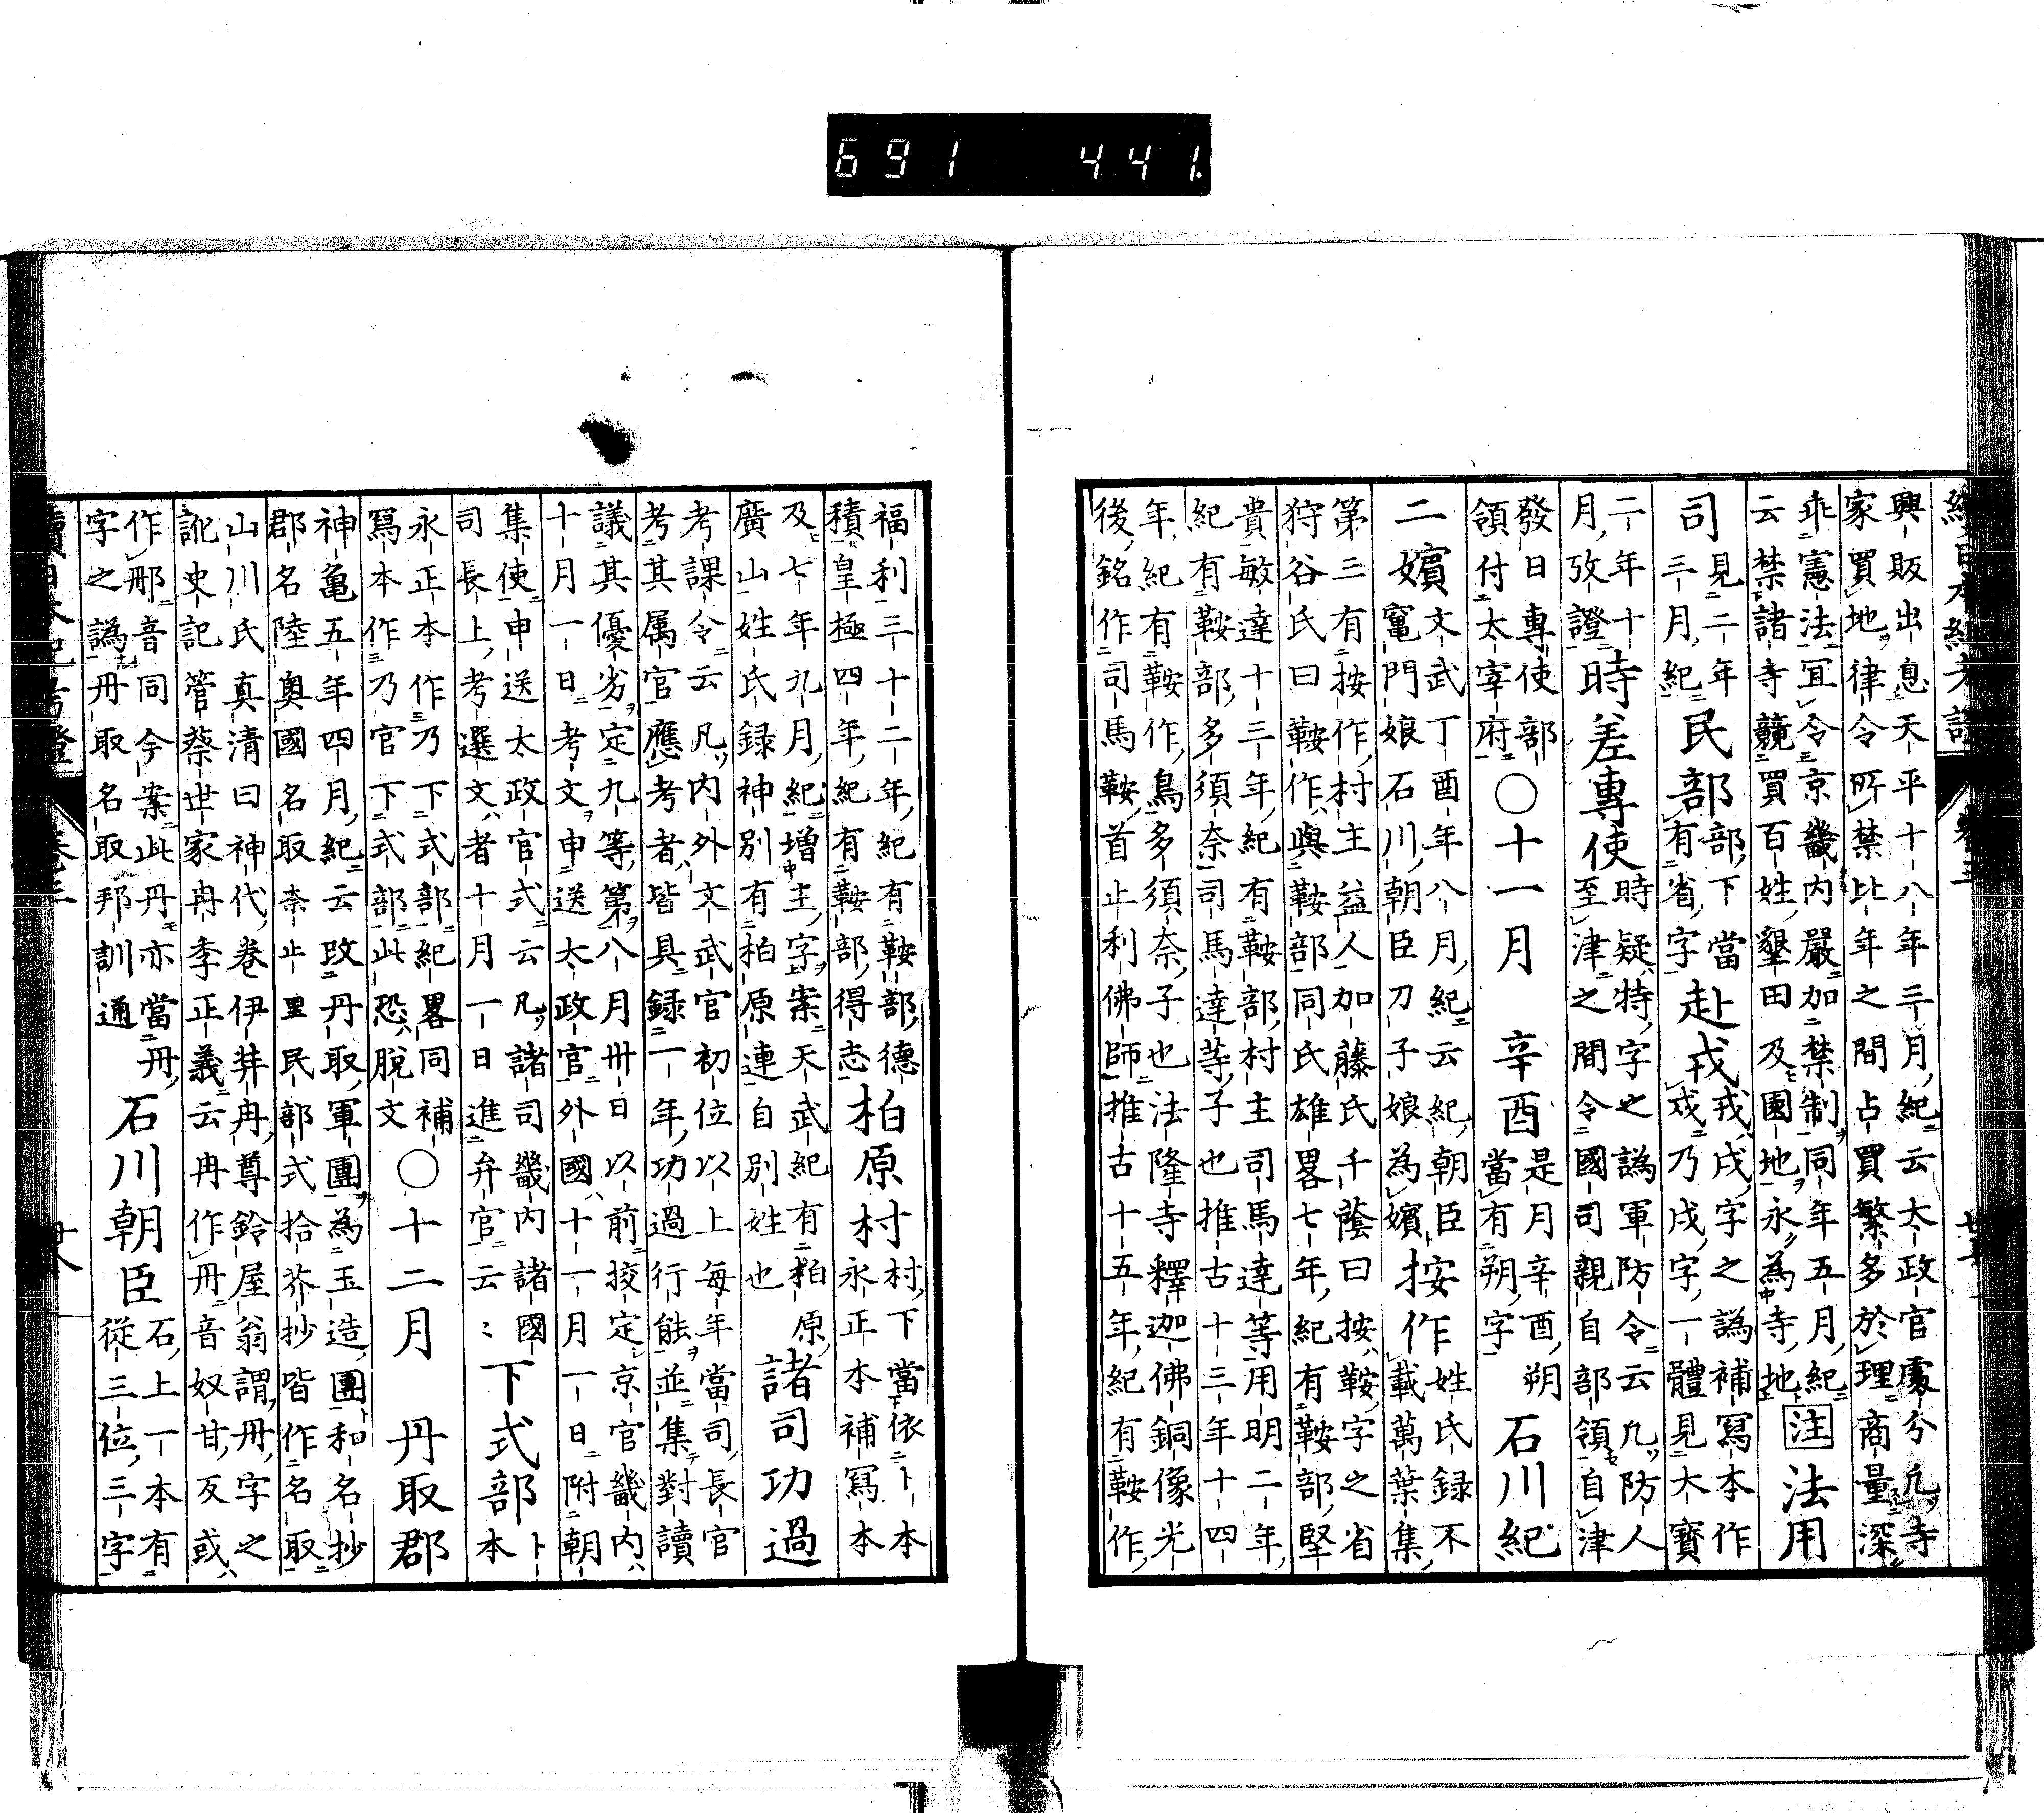 691 441.
續日本紀考證
卷三
興販出息天平十八年三月紀云太政官處分凡寺
家買地律令所禁比年之間占買繁多於理商量深
乖憲法宜令京畿內嚴加禁制同年五月紀
云禁諸寺競買百姓墾田及園地永為寺地
注 法用
司
見二年
三月紀
民部
部下當
有省字
赴戎
戎戌字之譌補寫本作
戎乃戌字一體見大寶
二年十一
月攷證
時差專使
時疑特字之譌軍防令云凡防人
至津之間令國司親自部領自津
發日專使部
領付太宰府
○十一月 辛酉
是月辛酉朔
當有朔字
石川紀
二嬪
文武丁酉年八月紀云紀朝臣
竈門娘石川朝臣刀子娘為嬪
按作
姓氏録不
載萬葉集
第三有按作村主益人加藤氏千蔭曰按鞍字之省
狩谷氏曰鞍作與鞍部同氏雄畧七年紀有鞍部堅
貴敏達十三年紀有鞍部村主司馬達等用明二年
紀有鞍部多須奈司馬達等子也推古十三年十四
年紀有鞍作鳥多須奈子也法隆寺釋迦佛銅像光
後銘作司馬鞍首止利佛師推古十五年紀有鞍作
福利三十二年紀有鞍部德
積皇極四年紀有鞍部得志
柏原村
村下當依卜本
永正本補寫本
及七年九月紀增主字案天武紀有柏原
廣山姓氏録神別有柏原連自別姓也
諸司功過
考課令云凡內外文武官初位以上每年當司長官
考其属官應考者皆具録一年功過行能並集對讀
議其優劣定九等第八月卅日以前挍定京官畿內
十月一日考文申送太政官外國十一月一日附朝
集使申送太政官式云凡諸司畿內諸國
司長上考選文者十月一日進弁官云〻
下式部
卜本
永正本作乃下式部紀畧同補
寫本作乃官下式部此恐脫文
○十二月 丹取郡
神亀五年四月紀云改丹取軍團為玉造團和名抄
郡名陸奧國名取奈止里民部式拾芥抄皆作名取
山川氏真清曰神代卷伊弉冉尊鈴屋翁謂冊字之
訛史記管蔡世家冉季正義云冉作冊音奴甘反或
作𨚗音同今案此丹亦當冊
字之譌冊取名取邦訓通
石川朝臣
石上一本有
從三位三字
續日本紀考證
卷三
廿八